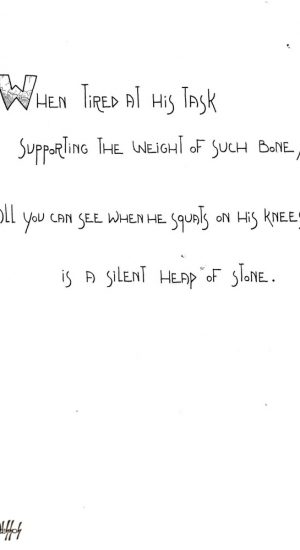 When tired at his task
supporting the weight of such bone,
All you can see when he squats on his knees
is a silent head of stone.